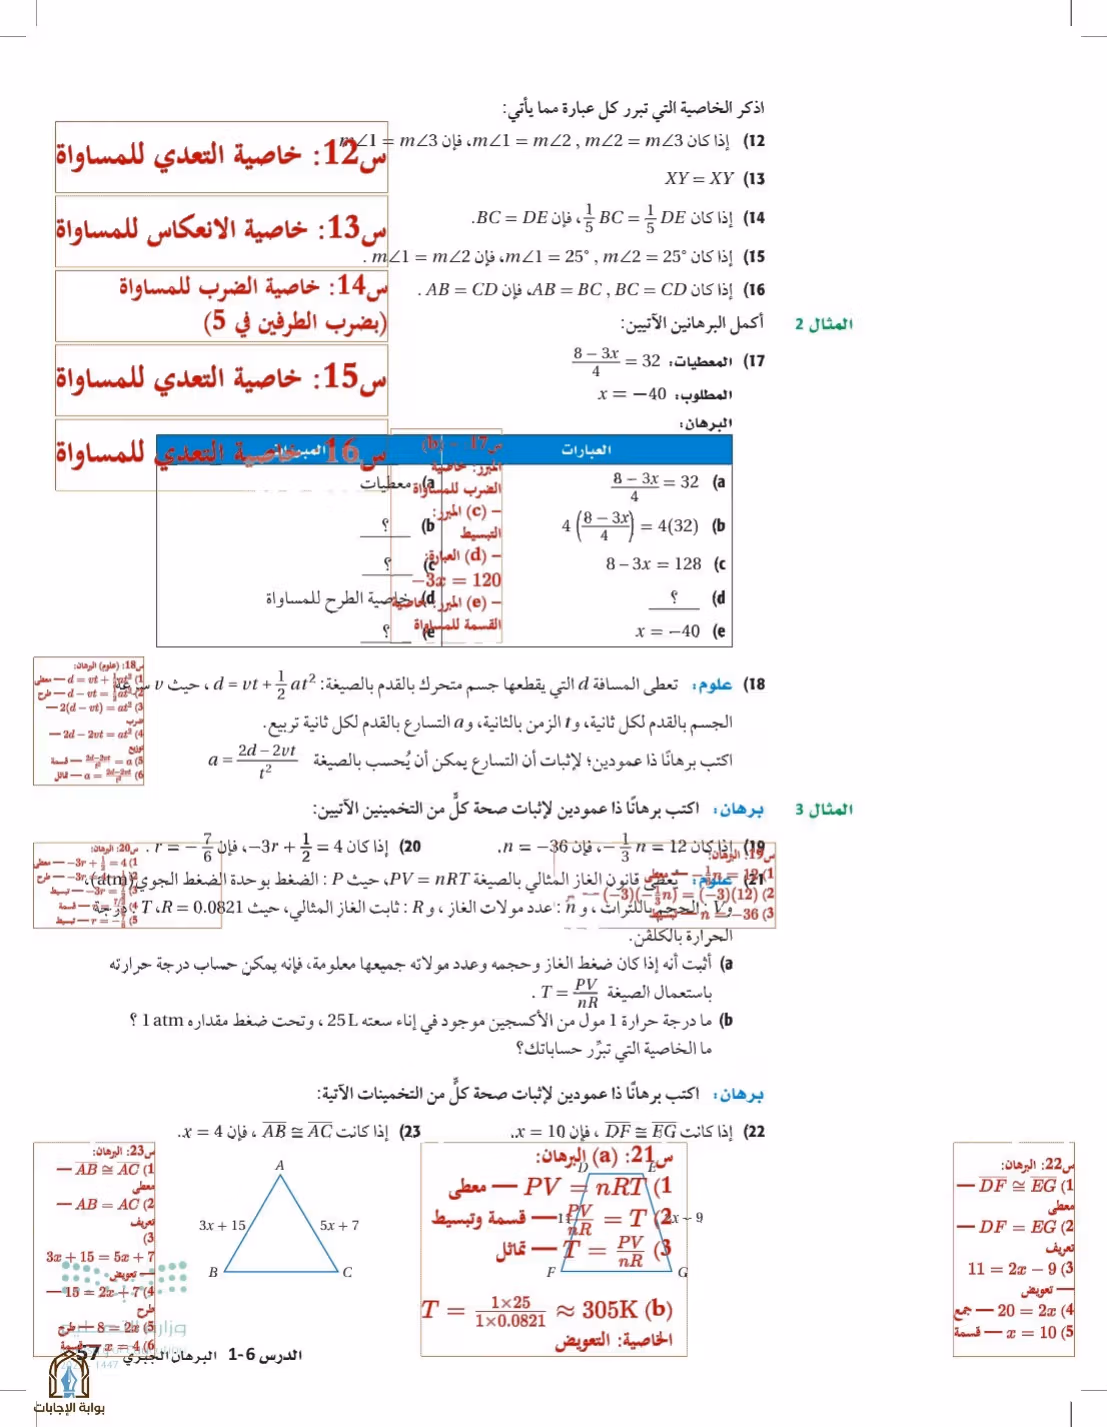 اذكر الخاصية التي تبرر كل عبارة مما يأتي:
12) إذا كان m∠1 = m∠2 , m∠2 = m∠3، فإن m∠1 = m∠3
س12: خاصية التعدي للمساواة
13) XY = XY
س13: خاصية الانعكاس للمساواة
14) إذا كان 1/5 BC = 1/5 DE، فإن BC = DE.
س14: خاصية الضرب للمساواة
(بضرب الطرفين في 5)
15) إذا كان m∠1 = 25° , m∠2 = 25°، فإن m∠1 = m∠2 .
س15: خاصية التعدي للمساواة
16) إذا كان AB = BC , BC = CD، فإن AB = CD .
س16: خاصية التعدي للمساواة
المثال 2 أكمل البرهانين الآتيين:
17) المعطيات: (8 − 3x)/4 = 32
المطلوب: x = −40
البرهان:
العبارات
المبررات
a) (8 − 3x)/4 = 32
a) معطيات
b) 4((8 − 3x)/4) = 4(32)
b) ؟
c) 8 − 3x = 128
c) ؟
d) ؟
d) خاصية الطرح للمساواة
e) x = −40
e) ؟
س17: – (b)
المبرر: خاصية
الضرب للمساواة
– (c) المبرر:
التبسيط
– (d) العبارة:
−3x = 120
– (e) المبرر: خاصية
القسمة للمساواة
18) علوم: تعطى المسافة d التي يقطعها جسم متحرك بالقدم بالصيغة: d = vt + 1/2 at²، حيث v سرعة
الجسم بالقدم لكل ثانية، و t الزمن بالثانية، و a التسارع بالقدم لكل ثانية تربيع.
اكتب برهانًا ذا عمودين؛ لإثبات أن التسارع يمكن أن يُحسب بالصيغة a = (2d − 2vt)/t²
س18: (علوم) البرهان:
1) d = vt + 1/2 at² — معطى
2) d − vt = 1/2 at² — طرح
3) 2(d − vt) = at² —
ضرب
4) 2d − 2vt = at² —
توزيع
5) (2d−2vt)/t² = a — قسمة
6) a = (2d−2vt)/t² — تماثل
المثال 3 برهان: اكتب برهانًا ذا عمودين لإثبات صحة كلٍّ من التخمينين الآتيين:
19) إذا كان −1/3 n = 12، فإن n = −36.
20) إذا كان −3r + 1/2 = 4، فإن r = −7/6 .
س19: البرهان:
1) −1/3 n = 12 — معطى
2) (−3)(−1/3 n) = (−3)(12) —
3) n = −36 — تبسيط
س20: البرهان:
1) −3r + 1/2 = 4 — معطى
21) علوم: يعطى قانون الغاز المثالي بالصيغة PV = nRT، حيث P : الضغط بوحدة الضغط الجوي (atm)،
و V : الحجم باللترات، و n : عدد مولات الغاز، و R : ثابت الغاز المثالي، حيث R = 0.0821، T : درجة
الحرارة بالكلفن.
a) أثبت أنه إذا كان ضغط الغاز وحجمه وعدد مولاته جميعها معلومة، فإنه يمكن حساب درجة حرارته
باستعمال الصيغة T = PV/nR .
b) ما درجة حرارة 1 مول من الأكسجين موجود في إناء سعته 25 L ، وتحت ضغط مقداره 1 atm ؟
ما الخاصية التي تبرِّر حساباتك؟
برهان: اكتب برهانًا ذا عمودين لإثبات صحة كلٍّ من التخمينات الآتية:
22) إذا كانت DF ≅ EG ، فإن x = 10.
23) إذا كانت AB ≅ AC ، فإن x = 4.
س22: البرهان:
1) DF ≅ EG —
معطى
2) DF = EG —
تعريف
3) 11 = 2x − 9
— تعويض
4) 20 = 2x — جمع
5) x = 10 — قسمة
س21: (a) البرهان:
1) PV = nRT — معطى
2) PV/nR = T — قسمة وتبسيط
3) T = PV/nR — تماثل
(b) T = (1×25)/(1×0.0821) ≈ 305K
الخاصية: التعويض
D E
11 2x − 9
F G
A
3x + 15 5x + 7
B C
س23: البرهان:
1) AB ≅ AC —
معطى
2) AB = AC —
تعريف
3)
3x + 15 = 5x + 7
— تعويض
4) 15 = 2x + 7 —
طرح
5) 8 = 2x — طرح
6) x = 4 — قسمة
الدرس 6-1 البرهان الجبري 57
بوابة الإجابات